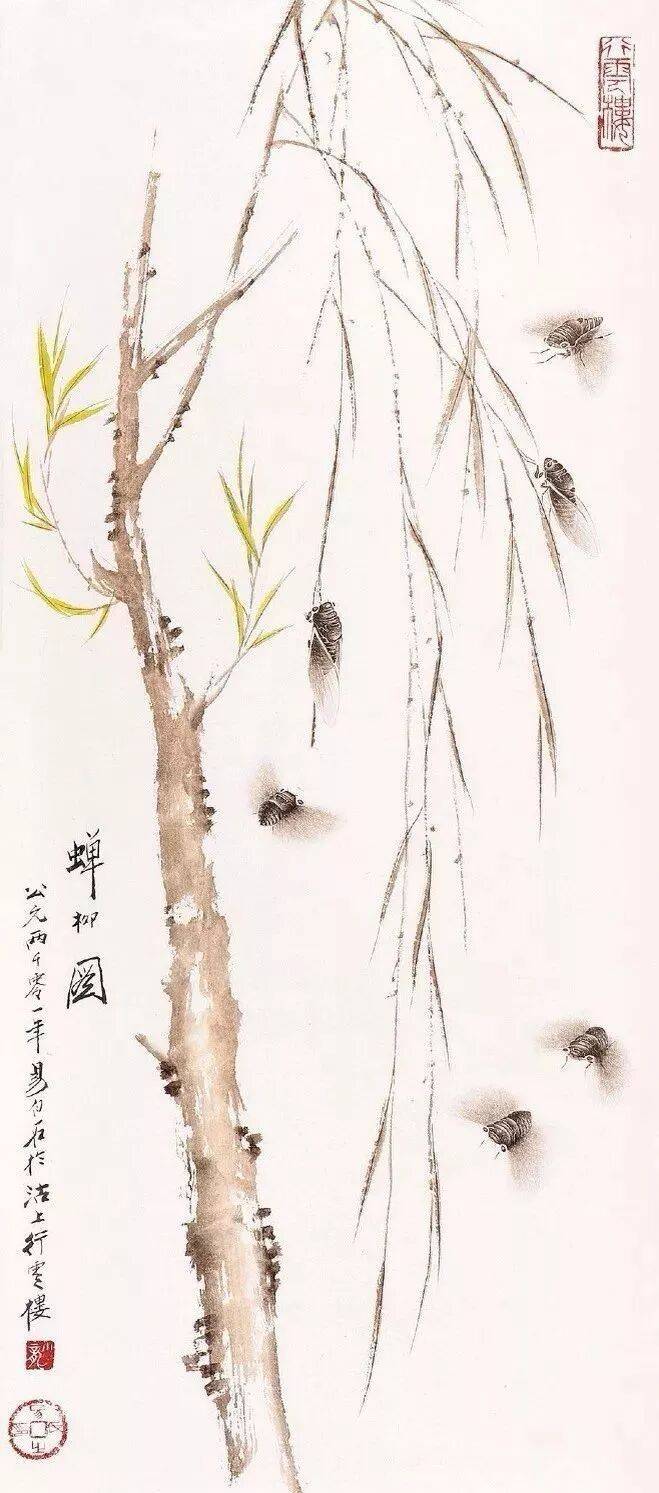 行雲樓
蟬柳圖
公元兩千零一年易白石於沽上行雲樓